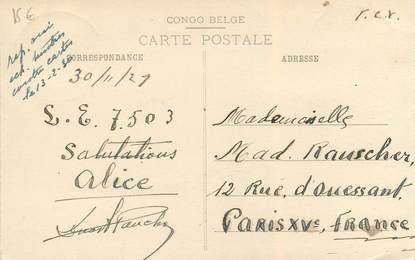 K E
CONGO BELGE
T.C.V.
CARTE POSTALE
CORRESPONDANCE
ADRESSE
rep. moi
ech. timbres
contre cartes
le 13-2-30
30/11/29
L.E. 7.503
Salutations
Alice
Mademoiselle
Mad. Rauscher,
12 Rue, d'Ouessant.
PARIS XVe, FRANCE